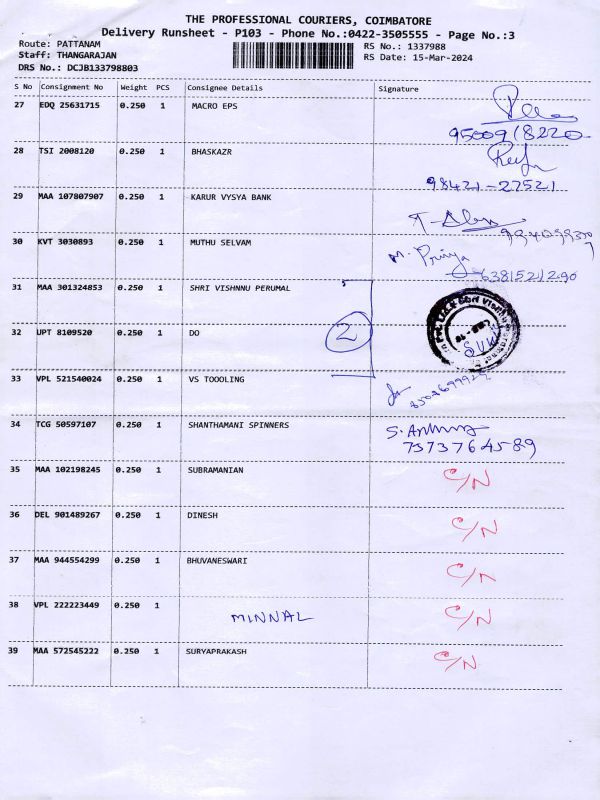 THE PROFESSIONAL COURIERS, COIMBATORE
Delivery Runsheet - P103 - Phone No.:0422-3505555 - Page No.:3
Route: PATTANAM RS No.: 1337988
Staff: THANGARAJAN RS Date: 15-Mar-2024
DRS No.: DCJB133798803
S No Consignment No Weight PCS Consignee Details Signature
27 EDQ 25631715 0.250 1 MACRO EPS
95009/8220
28 TSI 2008120 0.250 1 BHASKAZR
98421-27521
29 MAA 107807907 0.250 1 KARUR VYSYA BANK
30 KVT 3030893 0.250 1 MUTHU SELVAM M. Priya
31 MAA 301324853 0.250 1 SHRI VISHNNU PERUMAL
32 UPT 8109520 0.250 1 DO 2
33 VPL 521540024 0.250 1 VS TOOOLING
34 TCG 50597107 0.250 1 SHANTHAMANI SPINNERS
7373764589
35 MAA 102198245 0.250 1 SUBRAMANIAN C/N
36 DEL 901489267 0.250 1 DINESH C/N
37 MAA 944554299 0.250 1 BHUVANESWARI C/N
38 VPL 222223449 0.250 1 MINNAL C/N
39 MAA 572545222 0.250 1 SURYAPRAKASH C/N